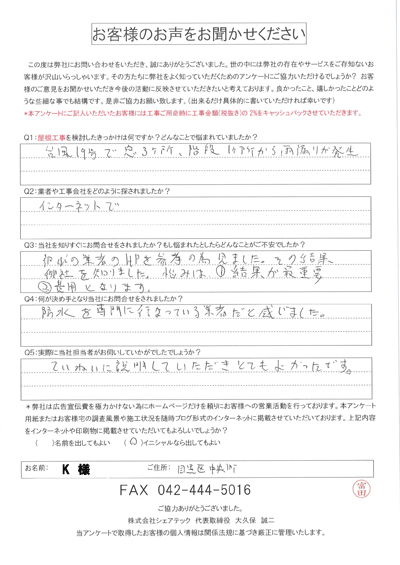 お客様のお声をお聞かせください
この度は弊社にお問い合わせをいただき、誠にありがとうございました。世の中には弊社の存在やサービスをご存知ないお
客様が沢山いらっしゃいます。その方たちに弊社をよく知っていただくためのアンケートにご協力いただけるでしょうか？ お客
様のご意見をお聞かせいただき今後の活動に反映させていただきたいと考えております。良かったこと、嬉しかったことどのよ
うな些細な事でも結構です。是非ご協力お願い致します。(出来るだけ具体的に書いていただければ幸いです)
*本アンケートにご記入いただいたお客様には工事ご用命時に工事金額(税抜き)の 2%をキャッシュバックさせていただきます。
Q1:屋根工事を検討したきっかけは何ですか？どんなことで悩まれていましたか？
台風19号で窓3ヶ所、階段1ヶ所から雨漏りが発生
Q2:業者や工事会社をどのように探されましたか？
インターネットで
Q3:当社を知りすぐにお問合せをされましたか？もし悩まれたとしたらどんなことがご不安でしたか？
何社かの業者のHPを参考の為見ました。その結果
御社を知りました。悩みは ①結果が最重要
②費用となります。
Q4:何が決め手となり当社にお問合せをされましたか？
防水を専門に行なっている業者だと感じました。
Q5:実際に当社担当者がお伺いしていかがでしたでしょうか？
ていねいに説明していただきとてもよかったです。
＊弊社は広告宣伝費を極力かけない為にホームページだけを頼りにお客様への営業活動を行っております。本アンケート
用紙またはお客様宅の調査風景や施工状況を随時ブログ形式のインターネットに掲載させていただいております。上記内容
をインターネットや印刷物に掲載させていただいてもよろしいでしょうか？
( )名前を出してもよい (○)イニシャルなら出してもよい
お名前: K 様 ご住所: 目黒区中央町
FAX 042-444-5016
富田
ご協力ありがとうございました。
株式会社シェアテック 代表取締役 大久保 誠二
当アンケートで取得したお客様の個人情報は関係法規に基づき厳正に管理いたします。